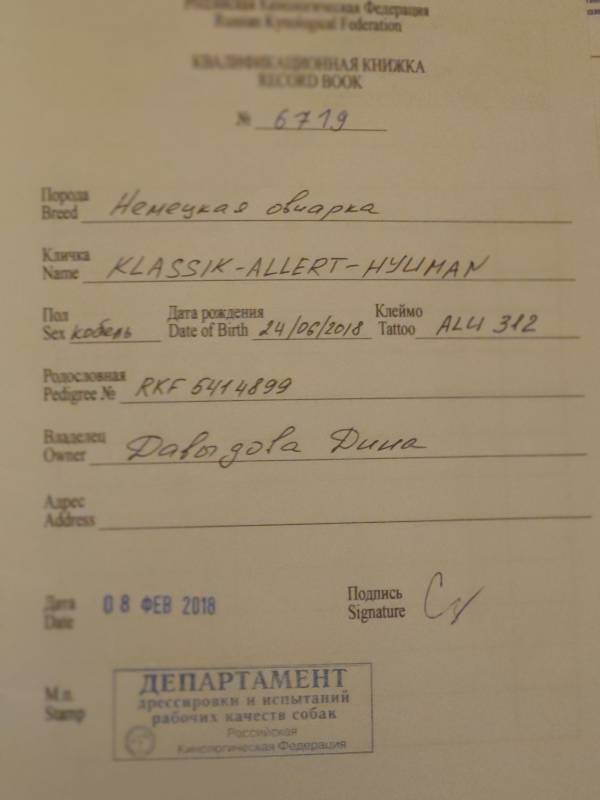 Российская Кинологическая Федерация
Russian Kynological Federation
КВАЛИФИКАЦИОННАЯ КНИЖКА
RECORD BOOK
№ 6719
Порода
Breed Немецкая овчарка
Кличка
Name KLASSIK-ALLERT-HYUMAN
Пол Дата рождения Клеймо
Sex кобель Date of Birth 24/06/2018 Tattoo ALU 312
Родословная
Pedigree № RKF 5414899
Владелец
Owner Давыдова Дина
Адрес
Address
Дата 08 ФЕВ 2018 Подпись
Date Signature
М.п.
Stamp
ДЕПАРТАМЕНТ
дрессировки и испытаний
рабочих качеств собак
Российская
Кинологическая Федерация